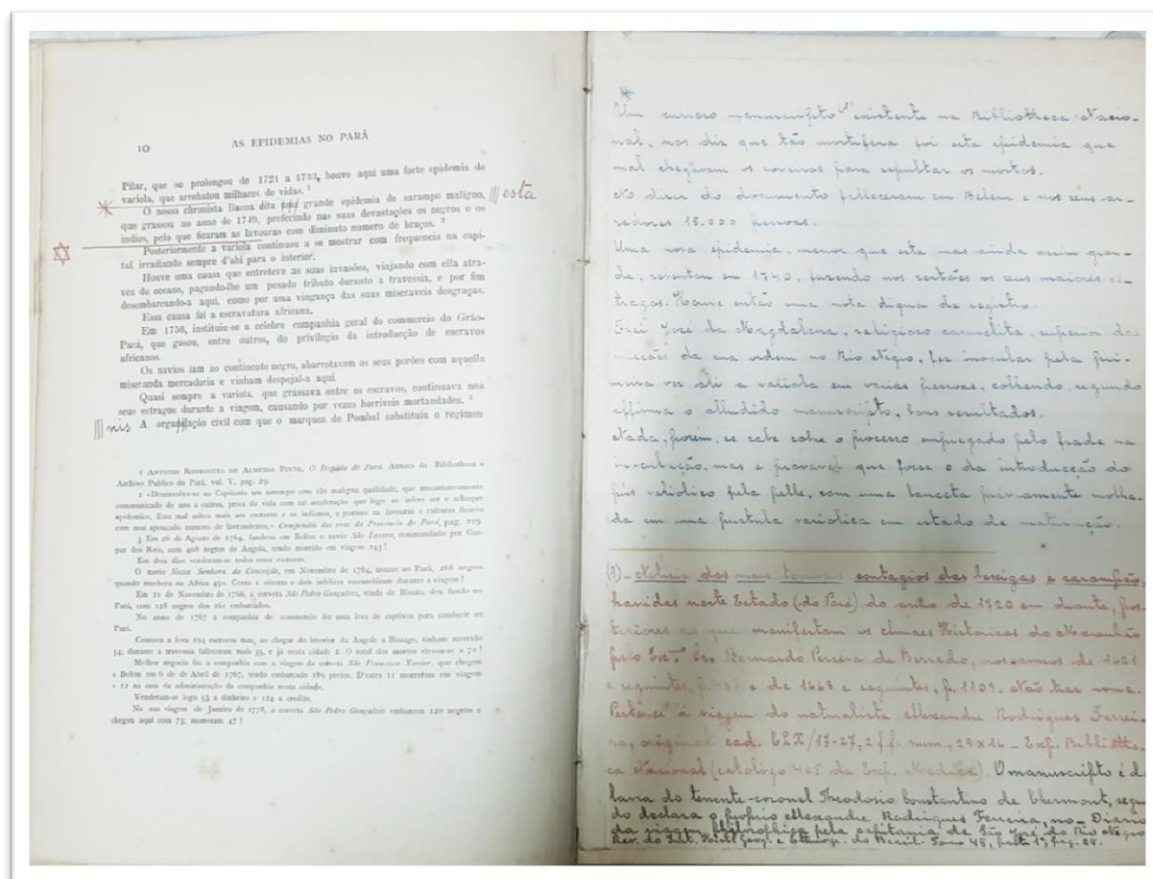 10
AS EPIDEMIAS NO PARÁ
Pilar, que se prolongou de 1721 a 1733, houve aqui uma forte epidemia de
variola, que arrebatou milhares de vidas. 1
O nosso chronista Baena dita grande epidemia de sarampo maligno,
esta
que grassou no anno de 1749, preferindo nas suas devastações os negros e os
indios, pelo que ficaram as lavouras com diminuto numero de braços. 2
Posteriormente a variola continuou a se mostrar com frequencia na capi-
tal, irradiando sempre d'ahi para o interior.
Houve uma causa que entreteve as suas invasões, viajando com ella atra-
vez do oceano, pagando-lhe um pesado tributo durante a travessia, e por fim
desembarcando-a aqui, como por uma vingança das suas miseraveis desgraças.
Essa causa foi a escravatura africana.
Em 1756, instituiu-se a celebre companhia geral do commercio do Grão-
Pará, que gosou, entre outros, do privilegio da introducção de escravos
africanos.
Os navios iam ao continente negro, abarrotavam os seus porões com aquella
miseranda mercadoria e vinham despejal-a aqui.
Quasi sempre a variola, que grassava entre os escravos, continuava nos
seus estragos durante a viagem, causando por vezes horriveis mortandades. 3
nis
A organisação civil com que o marquez de Pombal substituiu o regimen
1 ANTONIO RODRIGUES DE ALMEIDA PINTO, O Bispado do Pará. Annaes da Bibliotheca e
Archivo Publico do Pará, vol. V, pag. 29.
2 «Desenvolve-se na Capitania um sarampo com tão maligna qualidade, que instantaneamente
communicado de uns a outros, priva da vida com tal acceleração que logo se infere ser o achaque
epidemico. Este mal saltea mais aos escravos e os indianos, e portanto as lavouras e culturas ficaram
com mui apoucado numero de lavradores.» Compendio das eras da Provincia do Pará, pag. 229.
3 Em 26 de Agosto de 1764, fundeou em Belém o navio São Lazaro, commandado por Gas-
par dos Reis, com 428 negros de Angola, tendo morrido em viagem 143!
Em dois dias venderam-se todos esses escravos.
O navio Nossa Senhora da Conceição, em Novembro de 1764, trouxe ao Pará, 268 negros
quando recebera na Africa 450. Cento e oitenta e dois infelizes succumbiram durante a viagem!
Em 21 de Novembro de 1766, a corveta São Pedro Gonçalves, vinda de Bissáo, deu fundo no
Pará, com 128 negros dos 161 embarcados.
No anno de 1767 a companhia de commercio fez uma leva de captivos para conduzir ao
Pará.
Contava a leva 194 escravos mas, ao chegar do interior da Angola a Bissago, tinham morrido
34; durante a travessia falleceram mais 35, e já nesta cidade 2. O total dos mortos elevou-se a 71!
Melhor negocio fez a companhia com a viagem da corveta São Francisco Xavier, que chegou
a Belém em 6 de de Abril de 1767, tendo embarcado 189 pretos. D'estes 11 morreram em viagem
e 12 na casa da administração da companhia nesta cidade.
Venderam-se logo 33 a dinheiro e 124 a credito.
Na sua viagem de Janeiro de 1778, a corveta São Pedro Gonçalves embarcou 120 negros e
chegou aqui com 73; morreram 47!
Um curioso manuscripto (1) existente na Bibliotheca Nacio-
nal, nos diz que tão mortifera foi esta epidemia que
mal chegavam os coveiros para sepultar os mortos.
No dizer do documento falleceram em Belem e nos seus ar-
redores 15.000 pessoas.
Uma nova epidemia, menor que esta mas ainda assim gran-
de, rebentou em 1740, fazendo nos sertões os seus maiores es-
tragos. Houve então uma nota digna de registro.
Frei José da Magdalena, religioso carmelita, superior das
missões da sua ordem no Rio Negro, fez inocular pela pri-
meira vez ali a variola em varias pessoas, colhendo, segundo
affirma o alludido manuscripto, bons resultados.
Nada, porem, se sabe sobre o processo empregado pelo frade na
inoculação, mas é provavel que fosse o da introducção do
pús variolico pela pelle, com uma lanceta préviamente molha-
da em uma pustula variolica em estado de maturação.
(1) - Noticia dos mais terriveis contagios das bexigas e sarampão,
havidas neste Estado (do Pará) do anno de 1720 em diante, pos-
teriores as que manifestam os Annaes Historicos do Maranhão
pelo Exmo Sro Bernardo Pereira de Berredo, nos annos de 1621
e seguintes, e de 1663 e seguintes, p. 1109. Não traz nome.
Pertence á viagem do naturalista Alexandre Rodrigues Ferrei-
ra, original cod. CLX/17-27, 2 ff. num., 29x16 - Exp. Bibliothe-
ca Nacional (catalogo 405 da Exp. Medica). O manuscripto é da
lavra do tenente-coronel Theodosio Constantino de Chermont, segun-
do declara o proprio Alexandre Rodrigues Ferreira, no - Diario
da viagem philosophica pela capitania de São José do Rio Negro
Rev. do Inst. Hist. Geog. e Ethnogr. do Brasil. Tomo 48, parte 1ª, pag. 28.